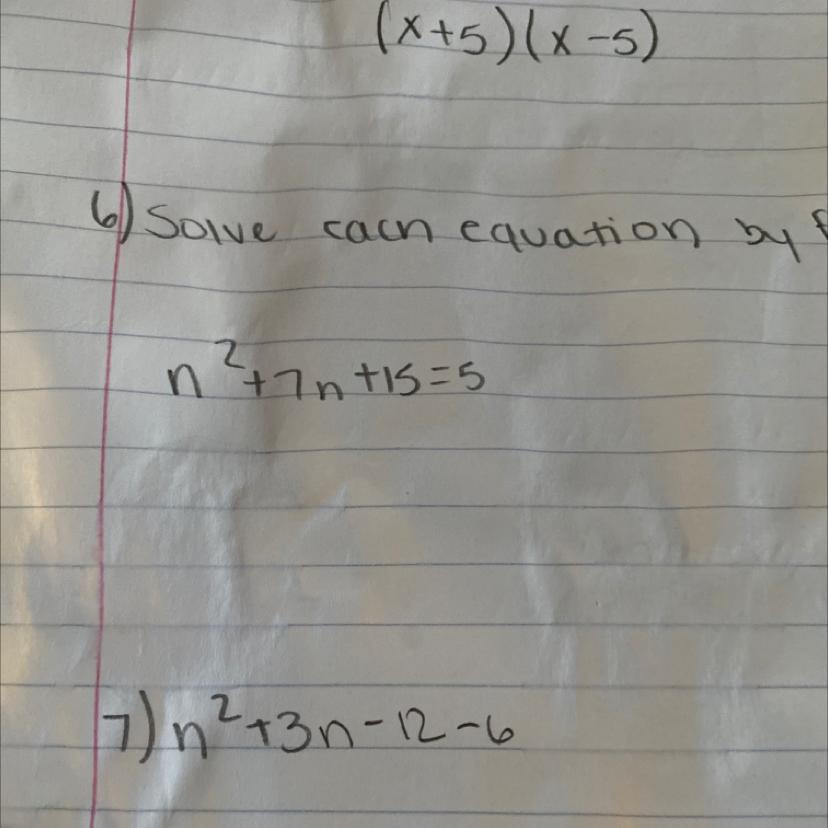 (x+5)(x-5)
6) Solve each equation by
n²+7n+15=5
7) n²+3n-12-6